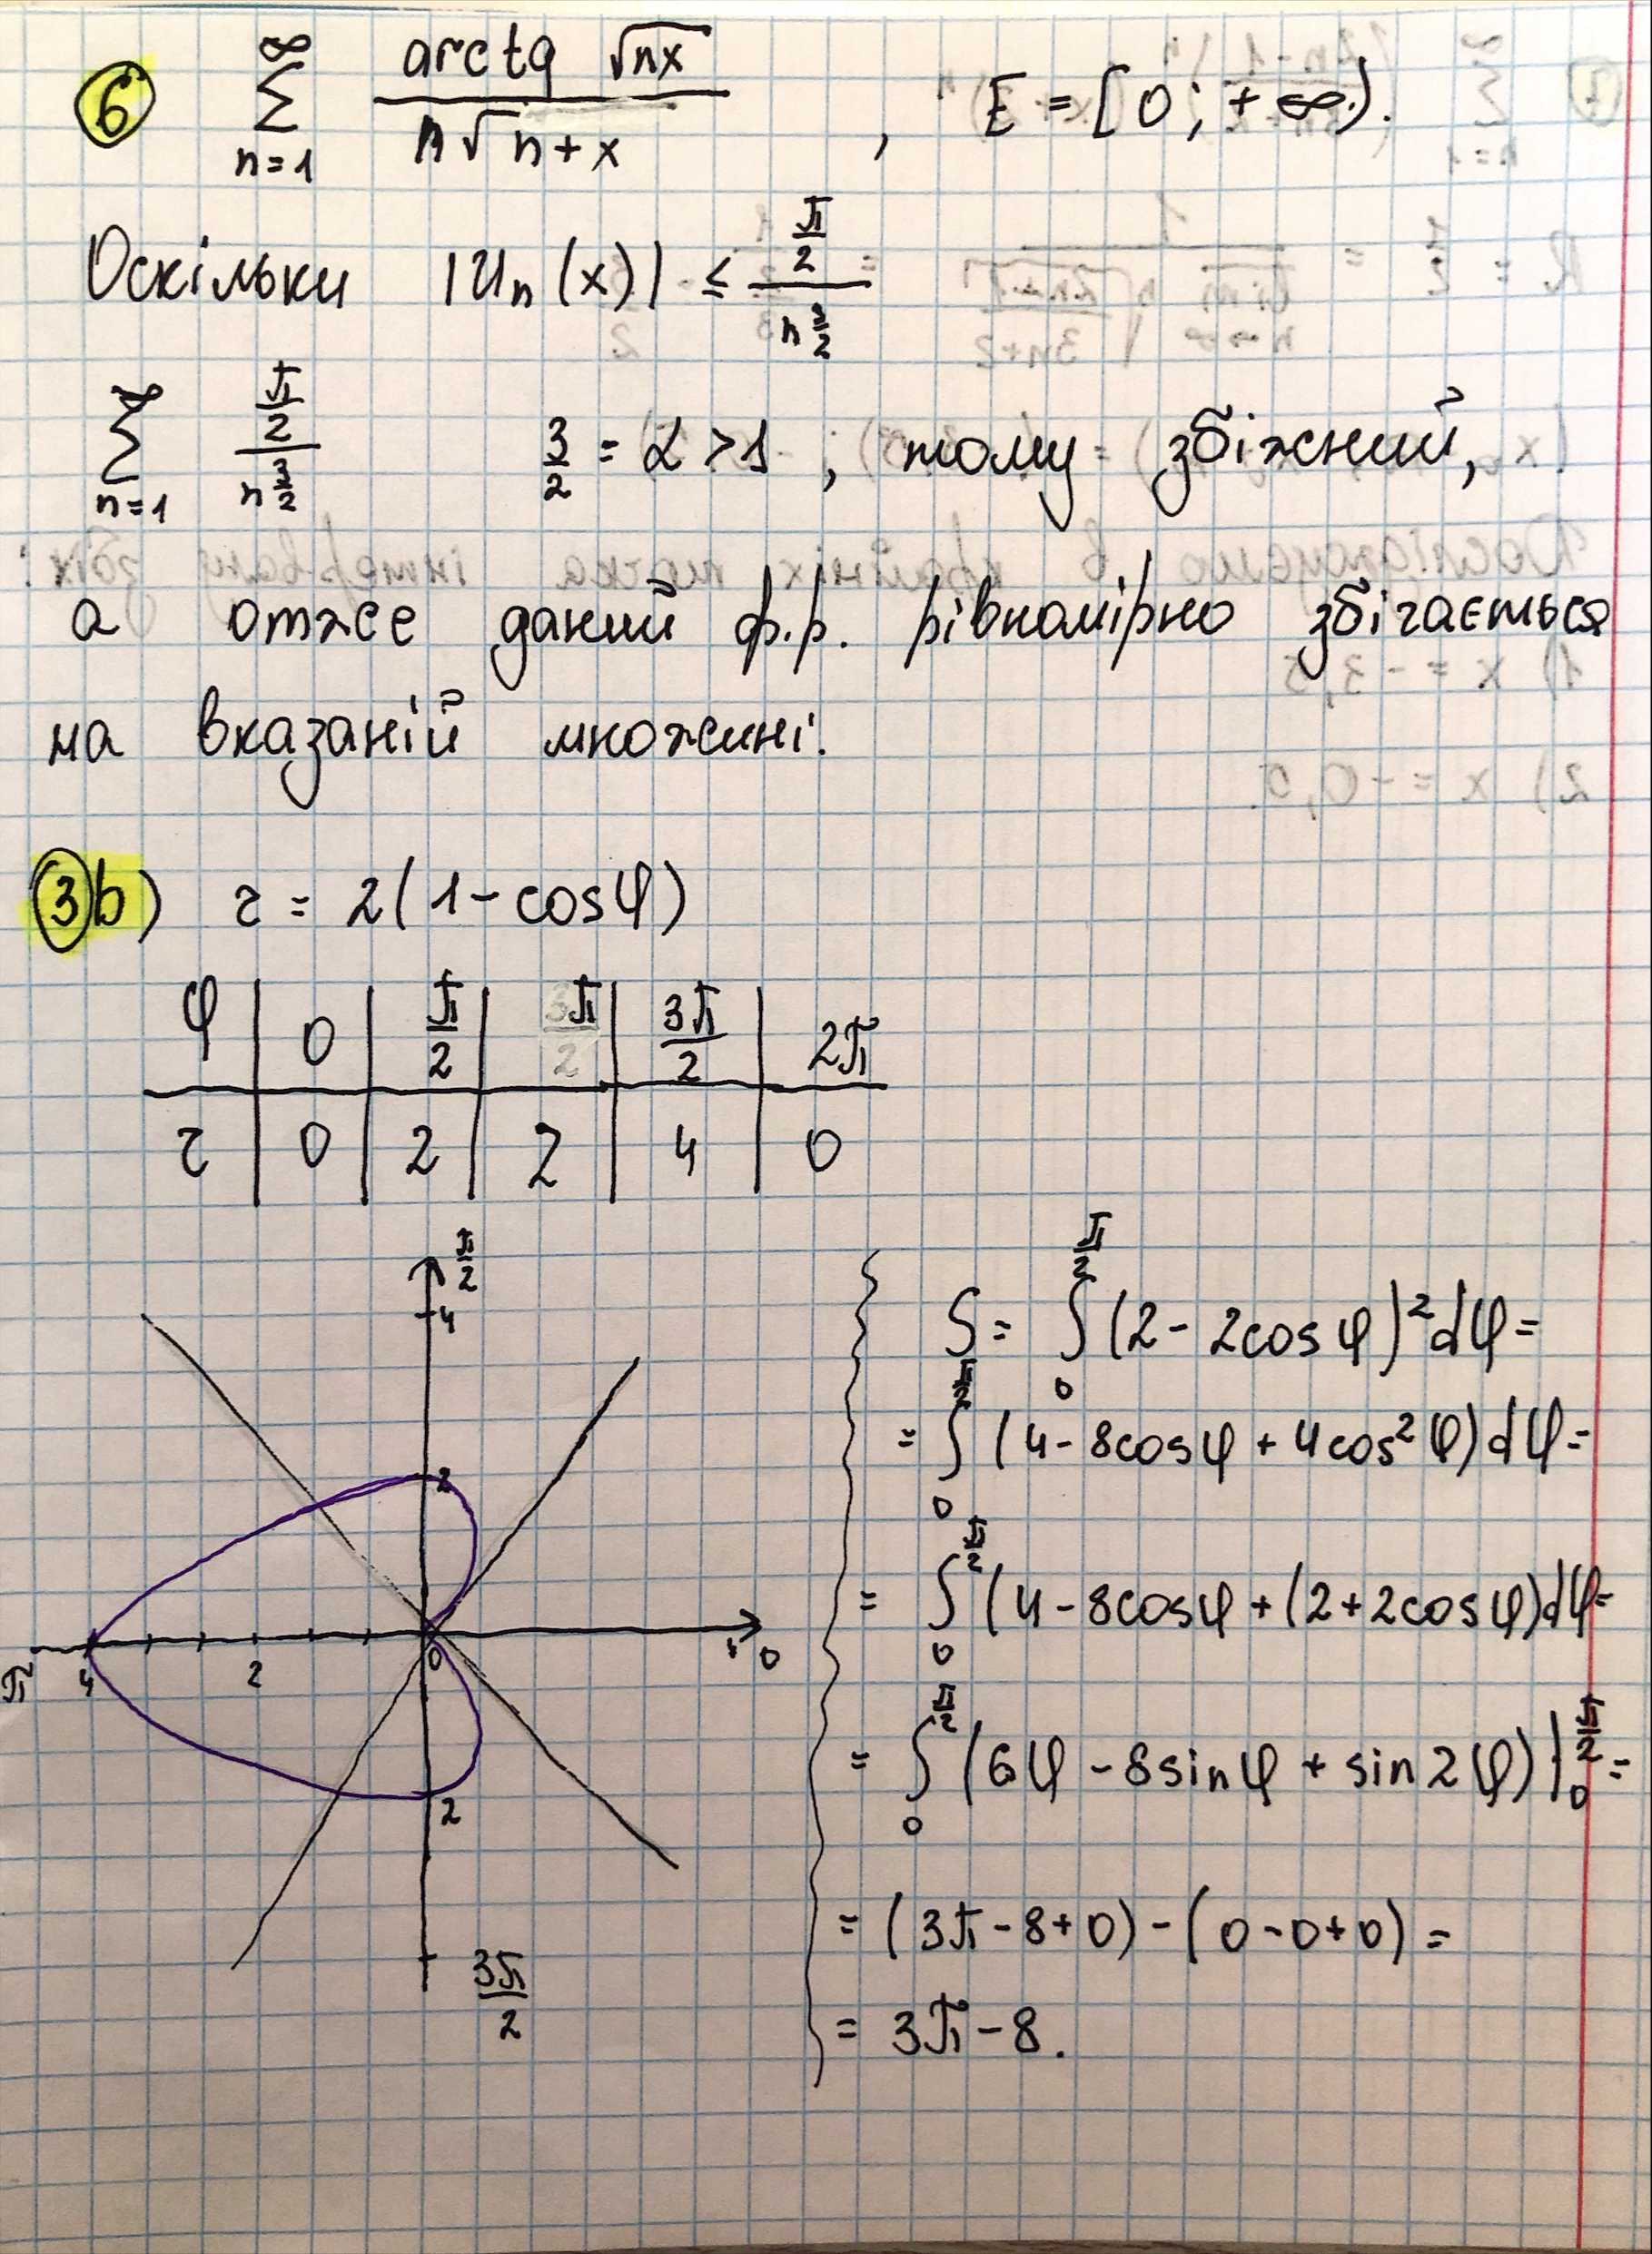 6 ∑_{n=1}^{∞} arctg √nx / n√n+x , E = [0; +∞).
Оскільки |Un(x)| ≤ π/2 / n^{3/2}
∑_{n=1}^{∞} π/2 / n^{3/2} 3/2 = α > 1 , тому збіжний,
а отже даний ф.р. рівномірно збігається
на вказаній множині.
3b) r = 2(1 - cosφ)
φ | 0 | π/2 | 3π/2 | 3π/2 | 2π
r | 0 | 2 | 2 | 4 | 0
π/2
4
2
π 4 2 0 0
2
3π/2
S = ∫_0^{π/2} (2 - 2cosφ)² dφ =
= ∫_0^{π/2} (4 - 8cosφ + 4cos²φ) dφ =
= ∫_0^{π/2} (4 - 8cosφ + (2 + 2cosφ) dφ =
= ∫_0^{π/2} (6φ - 8sinφ + sin2φ) |_0^{π/2} =
= (3π - 8 + 0) - (0 - 0 + 0) =
= 3π - 8.